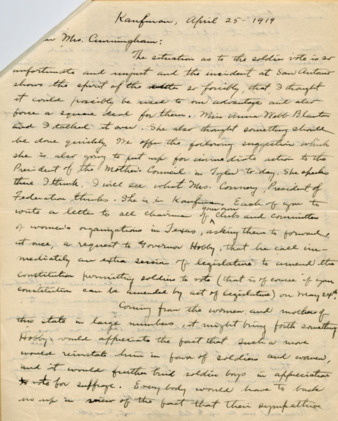 Kaufman, April 25 - 1919
Mrs. Cunningham:
The situation as to the soldier vote is so
unfortunate and unjust and the incident at San Antonio
shows the spirit of the so forcibly, that I thought
it could possibly be used to our advantage and also
force a square deal for them. Miss Annie Webb Blanton
and I talked it over. She also thought something should
be done quickly. We offer the following suggestion which
she is also going to put up for immediate action to the
President of the Mothers Council in Tyler to-day. She speaks
there I think. I will see what Mrs. Conney, President of
Federation thinks. She is in Kaufman. Each of you to
write a letter to all chairmen of your own Clubs and committees
of women's organizations in Texas, asking them to forward,
at once, a request to Governor Hobby, that he call im-
mediately an extra session of legislature to amend the
Constitution permitting soldiers to vote (that is of course if your
constitution can be amended by act of legislature) on May 24th
Coming from the women and mothers of
this state in large numbers, it might bring forth something
Hobby would appreciate the fact that such a move
would reinstate him in favor of soldiers and women,
and it would further bind soldier boys in appreciation
to vote for suffrage. Everybody would have to back
us up in view of the fact that their sympathies